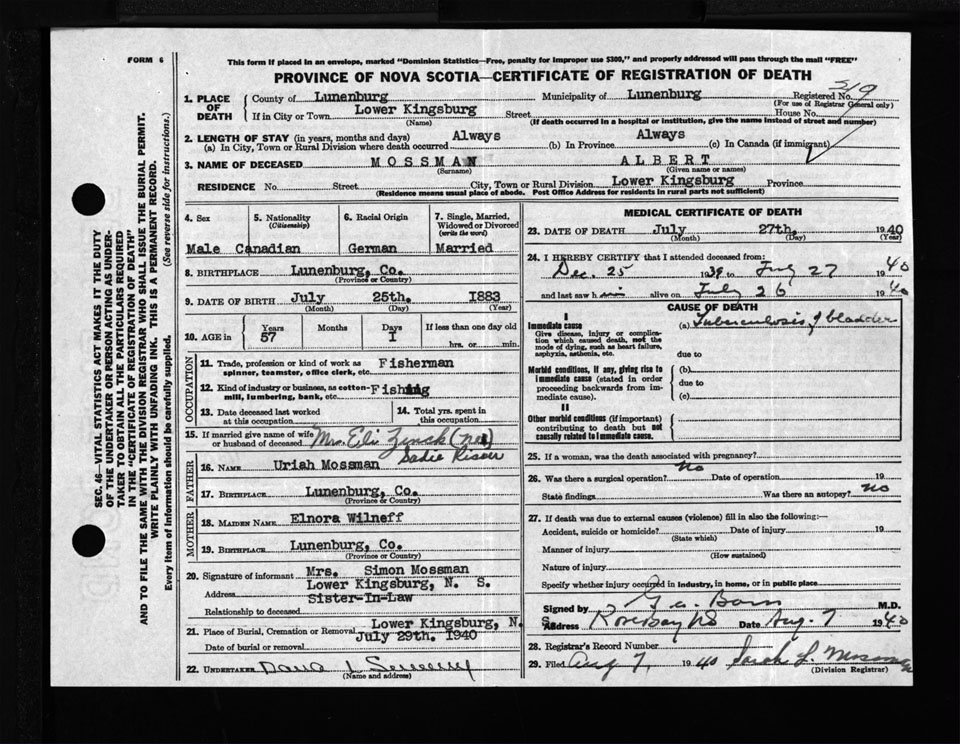 FORM 6
This form if placed in an envelope, marked "Dominion Statistics—Free, penalty for improper use $300," and properly addressed will pass through the mail "FREE"
PROVINCE OF NOVA SCOTIA—CERTIFICATE OF REGISTRATION OF DEATH
SEC. 46—VITAL STATISTICS ACT MAKES IT THE DUTY
OF THE UNDERTAKER OR PERSON ACTING AS UNDER-
TAKER TO OBTAIN ALL THE PARTICULARS REQUIRED
IN THE "CERTIFICATE OF REGISTRATION OF DEATH"
AND TO FILE THE SAME WITH THE DIVISION REGISTRAR WHO SHALL ISSUE THE BURIAL PERMIT.
WRITE PLAINLY WITH UNFADING INK. THIS IS A PERMANENT RECORD.
Every item of Information should be carefully supplied. (See reverse side for instructions.)
1. PLACE OF DEATH County of Lunenburg Municipality of Lunenburg Registered No. 519
(For use of Registrar General only)
If in City or Town Lower Kingsburg Street House No.
(Name) (If death occurred in a hospital or institution, give the name instead of street and number)
2. LENGTH OF STAY (in years, months and days) Always Always
(a) In City, Town or Rural Division where death occurred (b) In Province (c) In Canada (if immigrant)
3. NAME OF DECEASED MOSSMAN ALBERT
(Surname) (Given name or names)
RESIDENCE No. Street City, Town or Rural Division Lower Kingsburg Province
(Residence means usual place of abode. Post Office Address for residents in rural parts not sufficient)
4. Sex 5. Nationality 6. Racial Origin 7. Single, Married,
(Citizenship) Widowed or Divorced
(write the word)
Male Canadian German Married
8. BIRTHPLACE Lunenburg, Co.
(Province or Country)
9. DATE OF BIRTH July 25th. 1883
(Month) (Day) (Year)
10. AGE in Years Months Days If less than one day old
57 1 hrs. or min.
OCCUPATION
11. Trade, profession or kind of work as Fisherman
spinner, teamster, office clerk, etc.
12. Kind of industry or business, as cotton- Fishing
mill, lumbering, bank, etc.
13. Date deceased last worked 14. Total yrs. spent in
at this occupation this occupation
15. If married give name of wife Mrs. Eli Zinck (nee)
or husband of deceased Sadie Risser
FATHER
16. NAME Uriah Mossman
17. BIRTHPLACE Lunenburg, Co.
(Province or Country)
MOTHER
18. MAIDEN NAME Elnora Wilneff
19. BIRTHPLACE Lunenburg, Co.
(Province or Country)
20. Signature of informant Mrs. Simon Mossman
Address Lower Kingsburg, N. S.
Relationship to deceased Sister-In-Law
21. Place of Burial, Cremation or Removal Lower Kingsburg, N. S.
Date of burial or removal July 29th. 1940
22. UNDERTAKER
(Name and address)
MEDICAL CERTIFICATE OF DEATH
23. DATE OF DEATH July 27th. 1940
(Month) (Day) (Year)
24. I HEREBY CERTIFY that I attended deceased from:
Dec. 25 1939 to July 27 1940
and last saw him alive on July 26 1940
CAUSE OF DEATH
I
Immediate cause (a) Tuberculosis of bladder
Give disease, injury or complica-
tion which caused death, not the
mode of dying, such as heart failure,
asphyxia, asthenia, etc. due to
Morbid conditions, if any, giving rise to (b)
immediate cause (stated in order due to
proceeding backwards from im-
mediate cause). (c)
II
Other morbid conditions (if important)
contributing to death but not
causally related to immediate cause.
25. If a woman, was the death associated with pregnancy?
26. Was there a surgical operation? No Date of operation 19
State findings Was there an autopsy? no
27. If death was due to external causes (violence) fill in also the following:—
Accident, suicide or homicide? Date of injury 19
(State which)
Manner of injury
(How sustained)
Nature of injury
Specify whether injury occurred in industry, in home, or in public place
Signed by M.D.
Address Rosebay NS Date Aug. 7 1940
28. Registrar's Record Number
29. Filed Aug 7, 1940 Sarah L. Mossman
(Division Registrar)